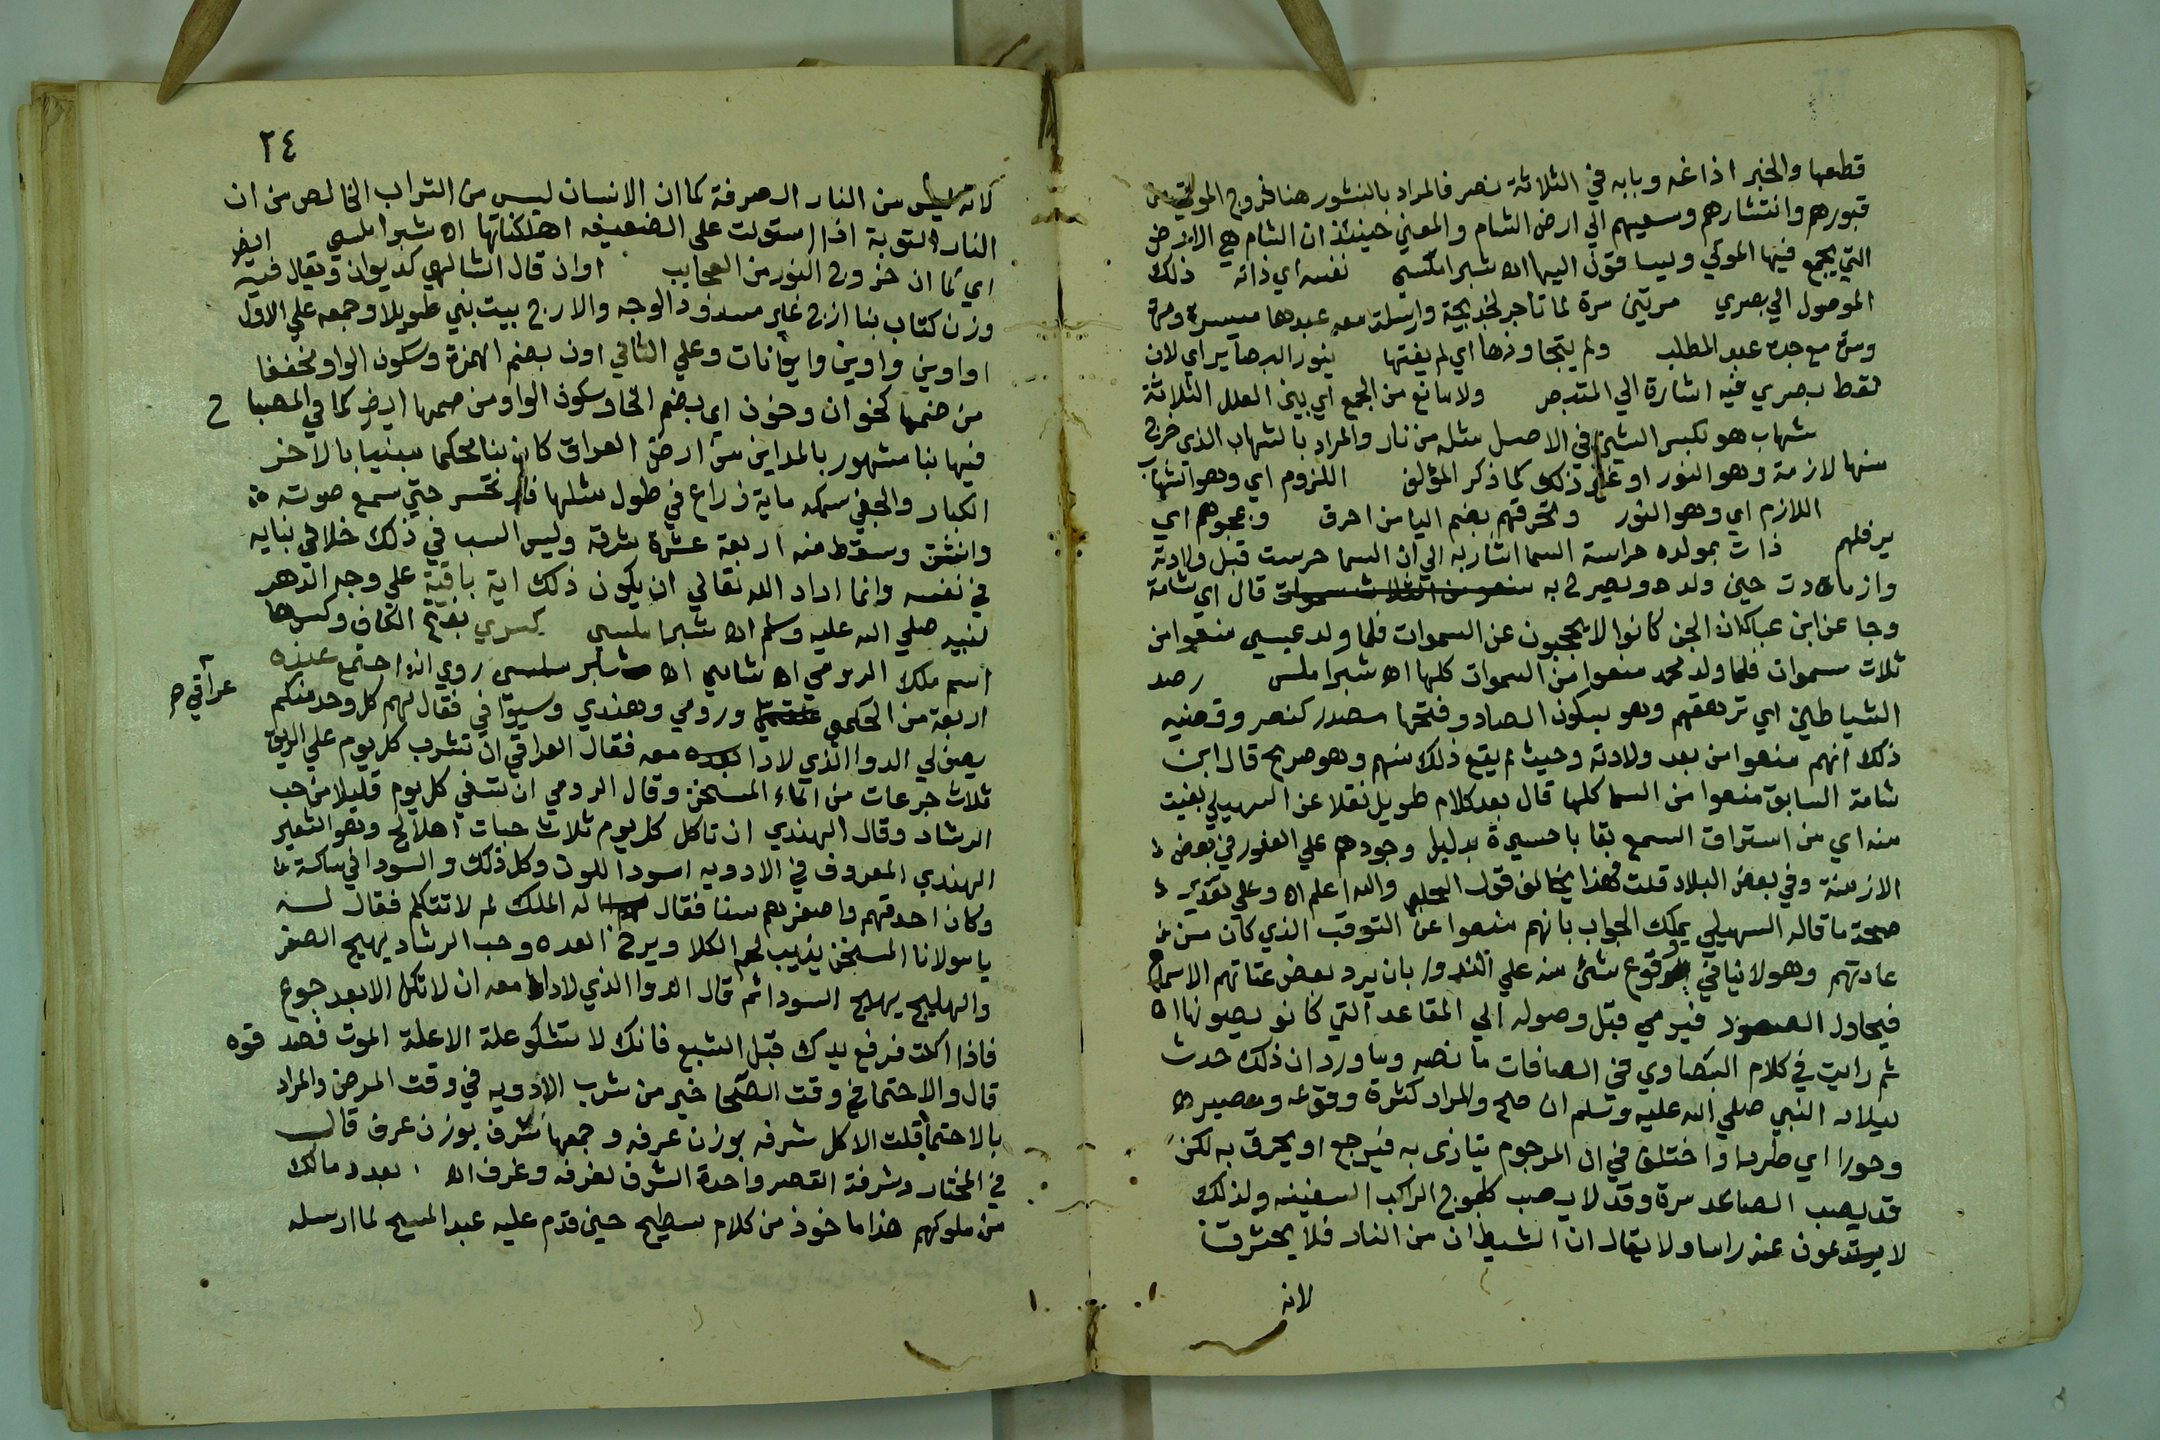 قطعها والخبر اذاغه وبابه في الثلاثة نصر فالمراد بالنشور هنا خروج الموتى من
قبورهم وانتشارهم وسعيهم الي ارض الشام والمعني حينئذ ان الشام هي الارض
التي يجمع فيها الموتي ويساقون اليها اه شبراملسي نفسه اي ذاته ذلك
الموصول الي بصري مرتين مرة لما تاجر لخديجة وارسلت معه عبدها ميسرة ومرة
ومرة مع جده عبد المطلب ولم يتجاوزها اي لم يفتها بنور البصاير اي لان
لفظ بصري فيه اشارة الي المتبصر ولا مانع من الجمع اي بين العلل الثلاثة
شهاب هو بكسر الشين في الاصل مثله من نار والمراد بالشهاب الذي خرج
منها لازمة وهو النور او غير ذلك كما ذكر المؤلف اللزوم اي وهو الشهاب
اللازم اي وهو النور وتحرقهم بضم اليا من احرق وبمجوهم اي
يرفلهم ذات بمولده حراسة السما اشار به الي ان السما حرست قبل ولادته
وازمادت حين ولد ه وبصرح به قال اي شامة
وجا عن ابن عباس كان الجن كانوا لا يحجبون عن السموات فلما ولد عيسي منعوا من
ثلاث سموات فلما ولد محمد منعوا من السموات كلها اه شبراملس رصد
الشياطين اي ترهقهم وهو بسكون الصاد وفتحها مصدر كنصر وقضيه
ذلك انهم منعوا من بعد ولادته وحيث لم يقع ذلك منهم وهو صريح قال ابن
شامة السابق منعوا من السما كلها قال بعد كلام طويل نقلا عن السهيلي بقيت
منه اي من استراق السمع بقا با حسيرة بدليل وجودهم علي الفور في بعض
الازمنة وفي بعض البلاد قلت فهذا يخالف قول والله اعلم اه وعلي تقدير
صحة ما قاله السهيلي يمكن الجواب بانهم منعوا عن التوقب الذي كان من
عادتهم وهو لا ينافي وقوع شئ منه علي الندور بان يرد بعض عتاتهم الاسماع
فيحاول الصعود فيرمي قبل وصوله الي المقاعد التي كانو يصيونها اه
ثم رايت في كلام البيضاوي في الصافات ما نصه وما ورد ان ذلك حدث
لميلاد النبي صلي الله عليه وسلم ان صح والمراد كثرة وقوعه ومصيره
دحورا اي طردا واختلف في ان المرجوم يتاذى به فيرجع او يحرق به لكن
قد يصيب الصاعد مرة وقد لا يصب كالموج الراكب السفينه ولذلك
لا يرتدعون عنه راسا ولا يقال ان الشيطان من النار فلا يحترق
لانه
٢٤
لانه ليس من النار الصرفة كما ان الانسان ليس من التراب الخالص من ان
النار القوية اذا استولت علي الضعيفه اهلكتها اه شبراملسي ايض
اي كما ان خروج النور من العجايب اوان قال الشالهي كديوان ويقال فيه
وزن كتاب بنا ازج غير مسدود الوجه والازج بيت بني طويلا وجمعه علي الاول
اواوين واوين وايوانات وعلي الثاني اون بضم الهمزة وسكون الواو مخففا
من ضمها كخوان وخون اي بضم الخا وسكون الواو من ضمها ايض كما في المصبا ح
فيها بنا مشهور بالمداين من ارض العراق كان بنا محكما مبنيا بالاخر
الكبار والجفي سمكه ماية ذراع في طول مثلها فارتجس حتي سمع صوته
وانشق وسقط منه اربعة عشرة شرفة وليس السبب في ذلك خلا في بنايه
في نفسه وانما اراد الله تعالي ان يكون ذلك اية باقية علي وجه الدهر
لنبيه صلي الله عليه وسلم اه شبراملسي كسري بفتح الكاف وكسرها
اسم ملك الرومي اه شامي اه شبراملسي روي انه اجتمع عنده
اربعة من الحكما ورومي وهندي وسوداني فقال لهم كل وحد منكم
عراقي صح
يصف لي الدوا الذي لا دا بعده معه فقال العراقي ان تشرب كل يوم علي الريق
ثلاث جرعات من الماء المسخن وقال الرومي ان تسفي كل يوم قليلا من حب
الرشاد وقال الهندي ان تاكل كل يوم ثلاث حبات اهلالج وهو الشعير
الهندي المعروف في الادويه اسود اللون وكل ذلك والسوداني ساكت
وكان احدقهم واصغرهم سنا فقال له الملك لم لا تتكلم فقال لـه
يا مولانا المسخن يذيب لحم الكلا ويرخ المعده وحب الرشاد يهيج الصفر
والهليج يهيج السودا ثم قال الدوا الذي لا دا معه ان لا تاكل الا بعد جوع
فاذا اكلت فرفع يدك قبل الشبع فانك لا تشكو علة الا علة الموت فصد قوه
قال والاحتما في وقت الصحا خير من شرب الادويه في وقت المرض والمراد
بالاحتما قلت الاكل شرفه بوزن غرفه وجمعها شرف بوزن غرف قال
في المختار وشرفة القصر واحدة الشرف لغرفه وغرف اه بعدد مالك
من ملوكهم هذا ماخوذ من كلام سطيح حين قدم عليه عبد المسيح لما ارسله